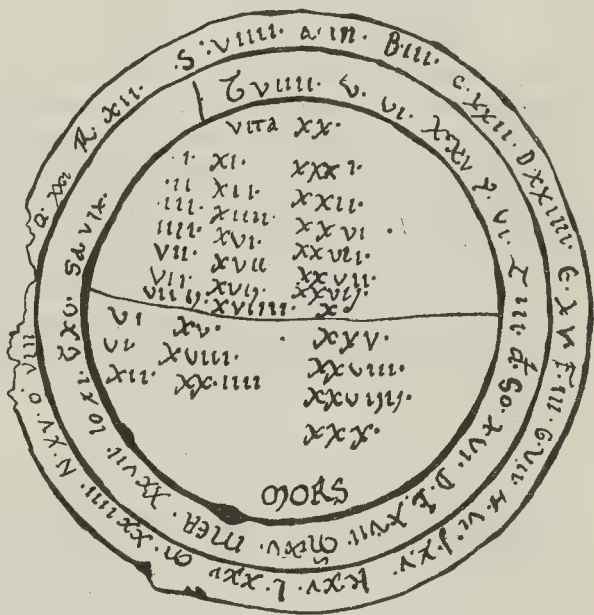 ·S·VIIII· a·in· B·III· C·XXII· D XXIIII· E·XV F·III· G·VII· H·VI· J·XV· K XV· L·XXV· M·XXIIII· N·XV· O·VIII Q·XXI R·XII·
VIIII· V· VI· VI· III· d· so· XVI· D·E·XVII· MER· XXVII· IO XI· V XV· sa VIX·
VITA XX·
·I· XI· XXXI·
·II XII· XXII·
·III· XIIII· XXVI·
IIII· XVI· XXVII·
VII· XVII XXVII·
VII· XVIJ· XXVIJ·
XVIIII· X
VI XV· XXV·
VI XVIII· XXVIII·
XII· XX·IIII XXVIJIJ·
XXX·
MORS